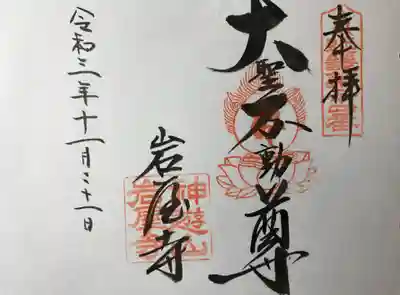 奉拝
大聖不動尊
岩屋寺
神遊山
岩屋寺
令和三年十一月二十一日